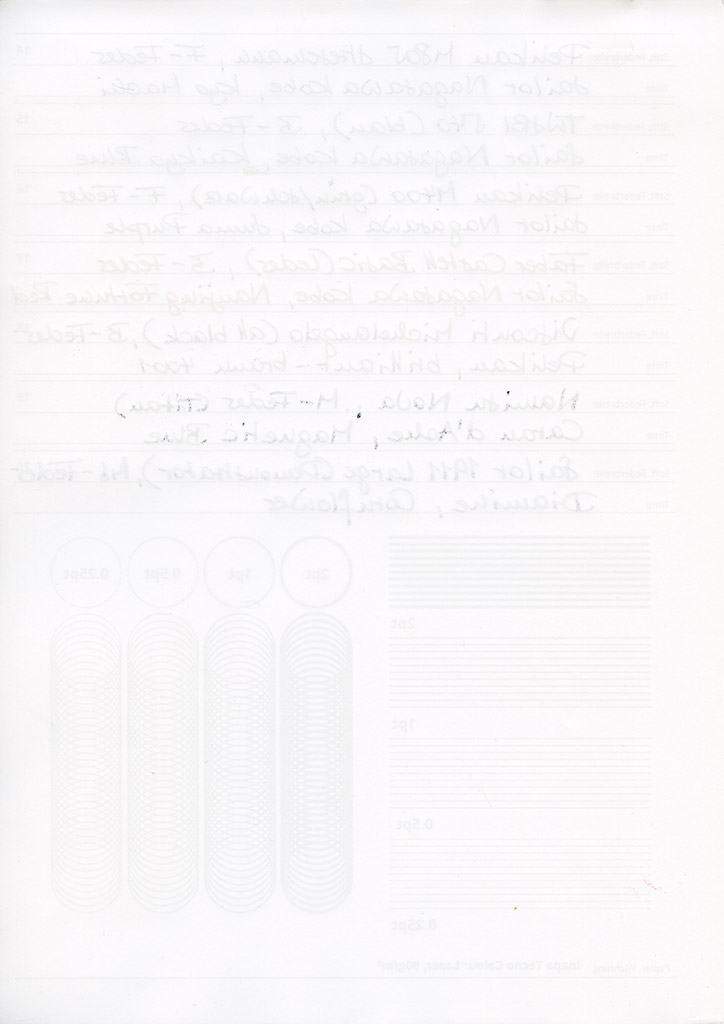 Pelikan M805 Stresemann, F-Feder
Sailor Nagasawa Kobe, Kyo Machi
TWSBI 540 (blau), B-Feder
Sailor Nagasawa Kobe, Kaikyo Blue
Pelikan M400 (grün/schwarz), F-Feder
Sailor Nagasawa Kobe, Suma Purple
Faber Castell Basic (Leder), B-Feder
Sailor Nagasawa Kobe, Nanjing Fortune Red
Visconti Michelangelo (all black), B-Feder
Pelikan, brilliant-braun 4001
Namisu Nova, M-Feder (Titan)
Caran d'Ache, Magnetic Blue
Sailor 1911 Large (Demonstrator), M-Feder
Diamine, Cornflower
2pt 1pt 0.5pt 0.25pt
2pt
1pt
0.5pt
0.25pt
Inapa Tecno Colour Laser, 90g/m²